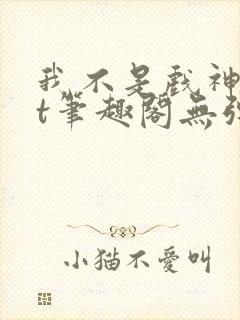 我不是戲神
t筆趣閣無
小猫不愛叫